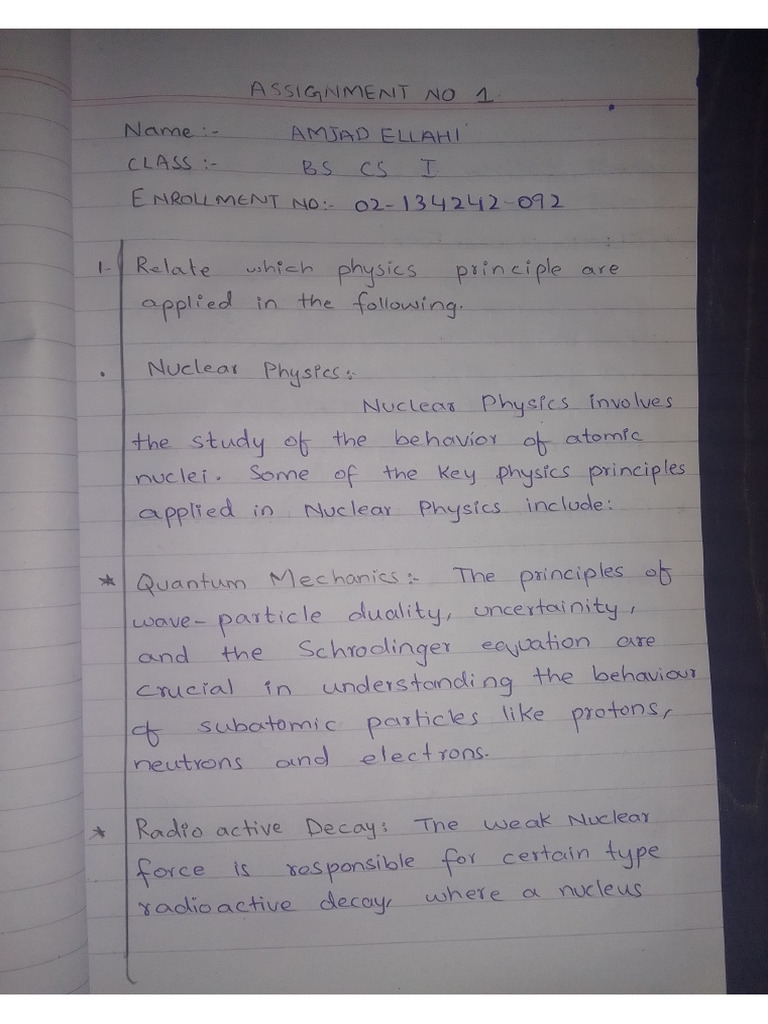 ASSIGNMENT NO 1
Name:- AMJAD ELLAHI
CLASS:- BS CS I
ENROLLMENT NO:- 02-134242-092
1- Relate which physics principle are
applied in the following.
. Nuclear Physics:-
Nuclear Physics involves
the study of the behavior of atomic
nuclei. Some of the key physics principles
applied in Nuclear Physics include:
* Quantum Mechanics:- The principles of
wave-particle duality, uncertainity,
and the Schrodinger equation are
crucial in understanding the behaviour
of subatomic particles like protons,
neutrons and electrons.
* Radio active Decay: The weak Nuclear
force is responsible for certain type
radioactive decay, where a nucleus